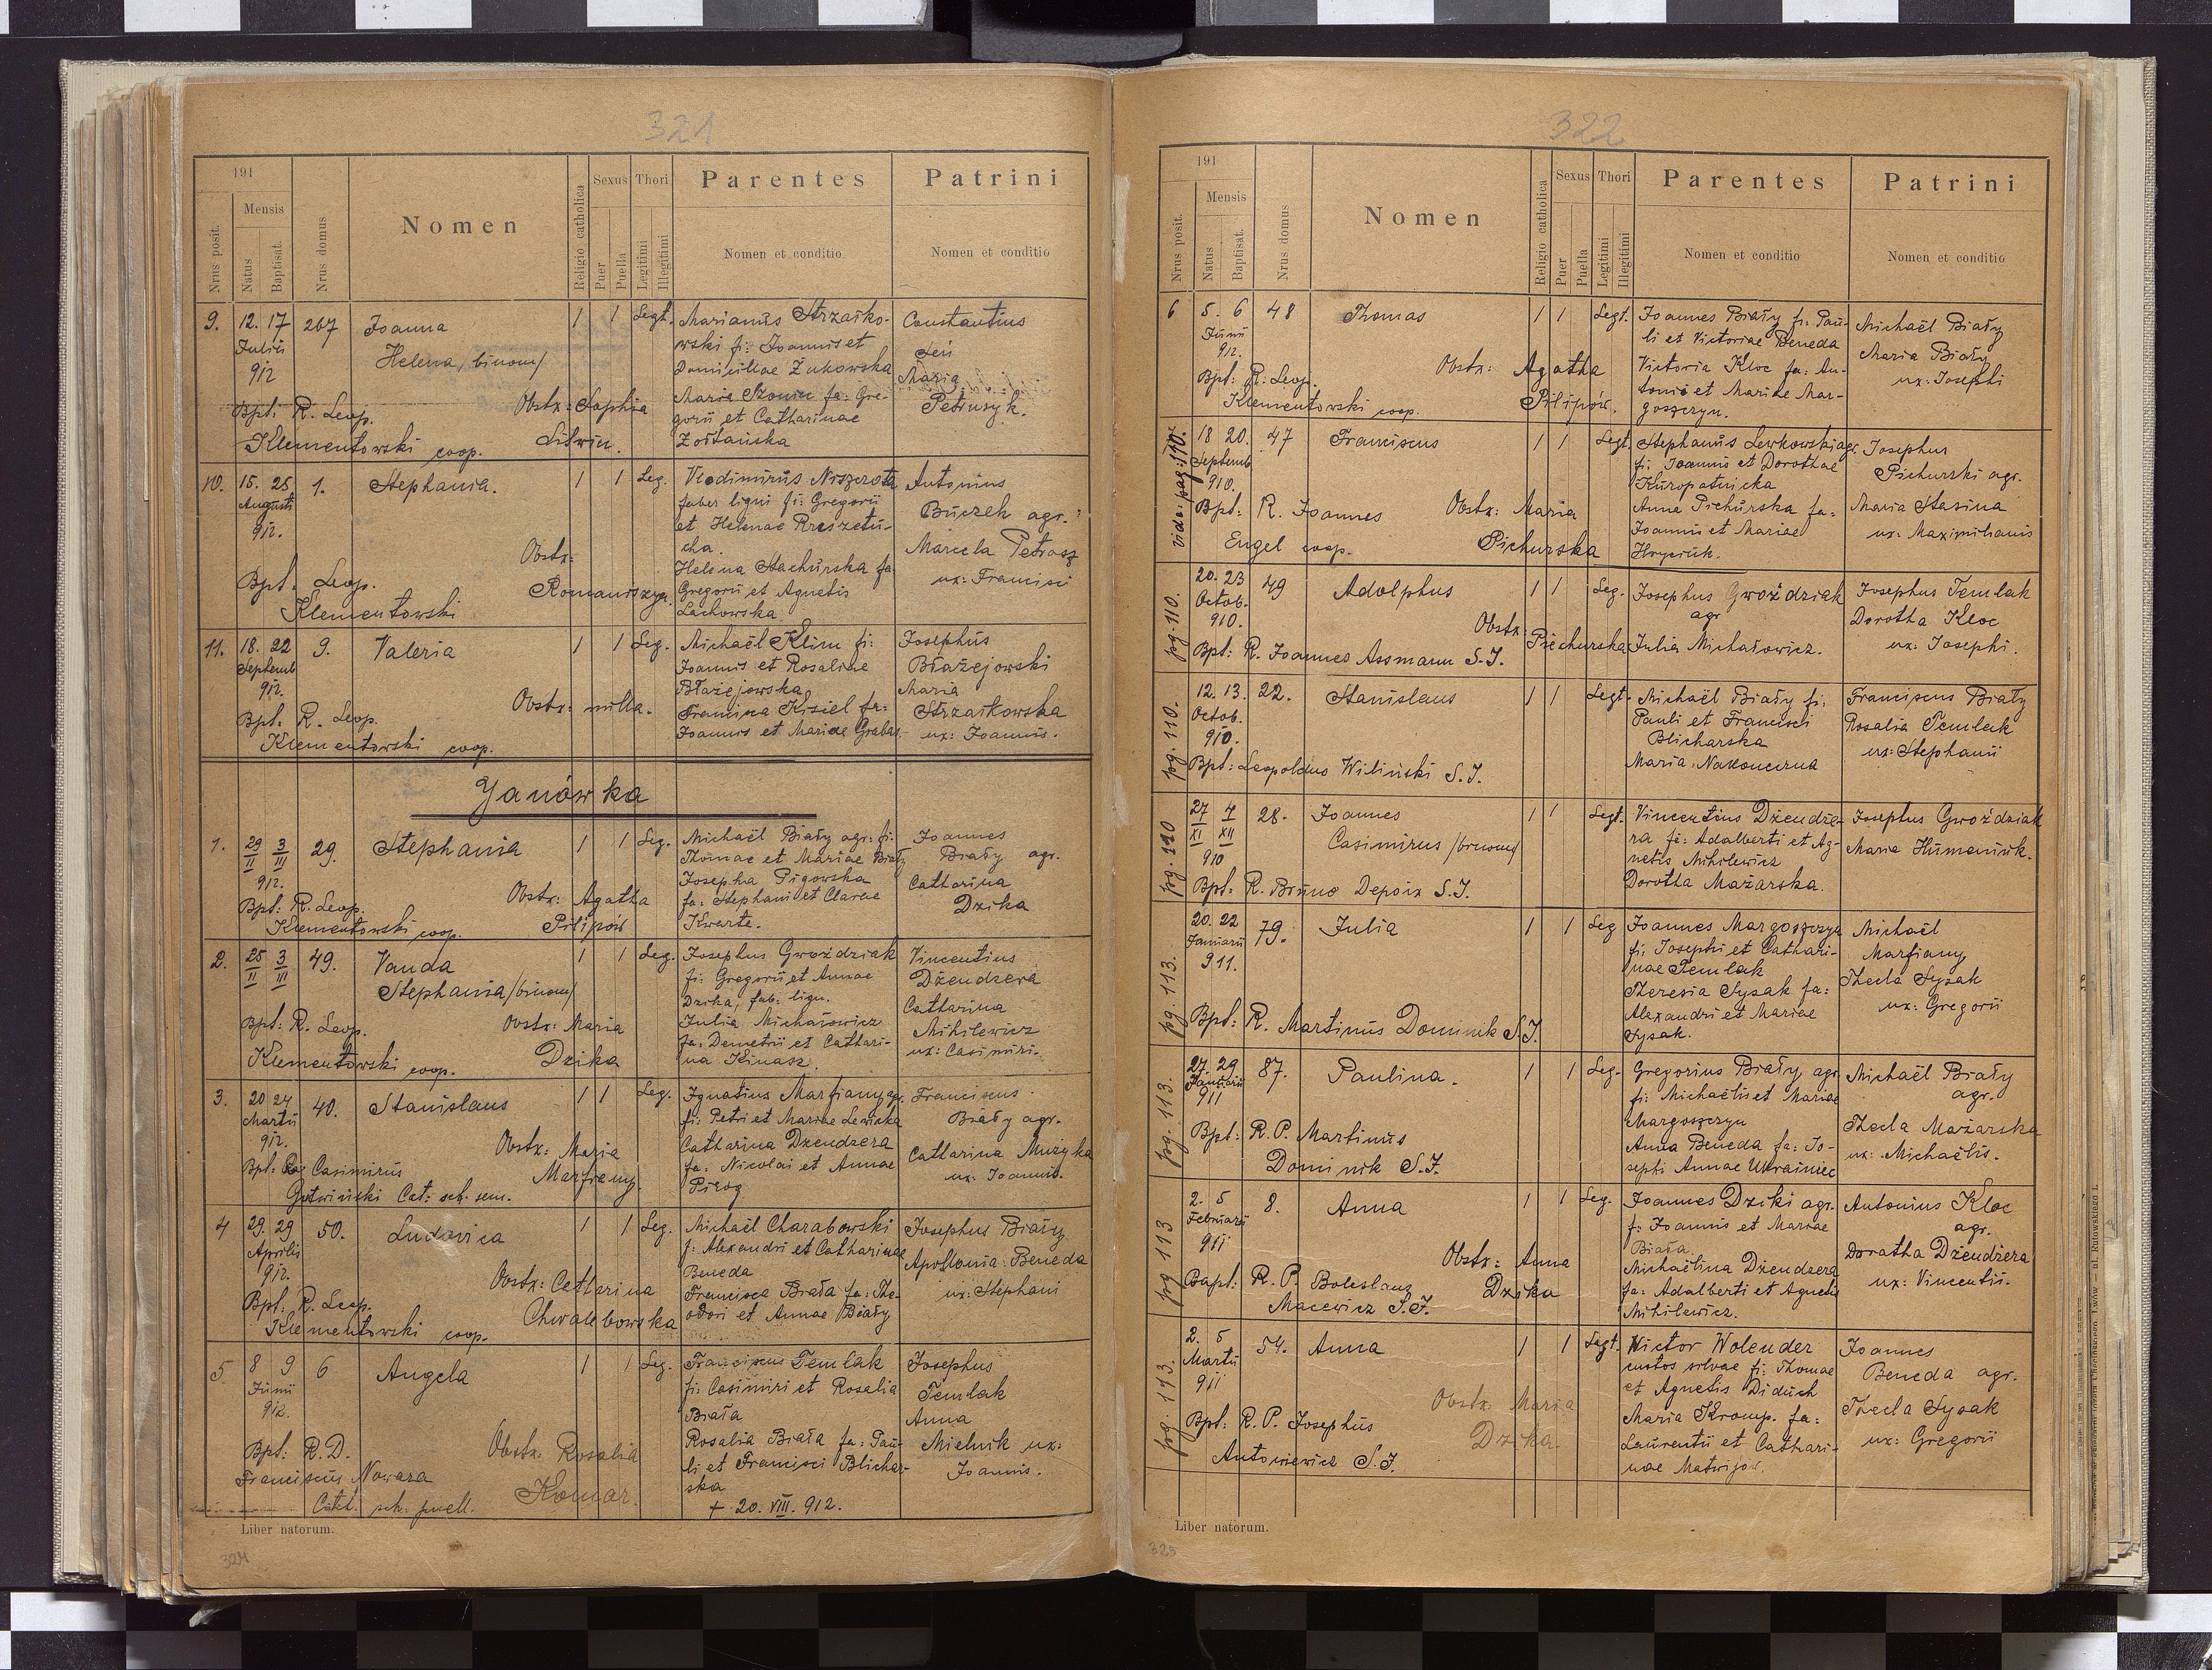 321
191
Nrus posit.
Mensis
Natus
Baptisat.
Nrus domus
Nomen
Religio catholica
Sexus
Puer
Puella
Thori
Legitimi
Illegitimi
Parentes
Nomen et conditio
Patrini
Nomen et conditio
9. 12. 17 267 Joanna 1 1 Legt. Marianus Strzałko- Constantius
Julii Helena, binom/ wski fi: Joannis et Leń
912 Domicillae Żukowska Maria
Bpt: R. Leop. Obstx: Sophia Maria Szoniu fa: Gre- Petrusyk.
Klementowski coop. Litwin. gorii et Catharinae
Żołtańska
10. 15. 25 1. Stephania. 1 1 Leg. Vlodimirus Niszczota Antonius
Augusti faber ligni fi: Gregorii Buczek agr.
912. et Helenae
Obstx: cha. Marcela Petrasz
Bpt. Leop. Romaniszyn. Helena Stachurska fa: ux: Francisci
Klementowski Gregorii et Agnetis
Lachowska
11. 18. 22 9. Valeria 1 1 Leg. Michaël Klim fi: Josephus
Septemb Joannis et Rosaliae Błażejowski
912. Błażejowska Maria
Bpt. R. Leop. Obstx: nulla. Francina Kisiel fa: Strzałkowska
Klementowski coop. Joannis et Mariae Grabas ux: Joannis.
Janówka
1. 29/II 3/III 29. Stephania 1 1 Leg. Michaël Biały agr. fi: Joannes
912. Thomae et Mariae Biały Biały agr.
Josepha Pigowska Catharina
Bpt: R. Leop. Obstx: Agatha fa: Stephani et Clarae Dzika
Klementowski coop. Pilipów Kwarte.
2. 25/II 3/III 49. Vanda 1 1 Leg. Josephus Gwoździak Vincentius
Stephania/binom/ fi: Gregorii et Annae Dżendzera
Dzika, fab: lign. Catharina
Bpt: R. Leop. Obstx: Maria Julia Michałowicz Mihilewicz
Klementowski coop. Dzika fa: Demetrii et Cathari- ux: Casimiri.
na Kinasz.
3. 20 24 40. Stanislaus 1 1 Leg. Ignatius Marfiany agr. Franciscus
Martii fi: Petri et Mariae Lewicka Biały agr.
912. Obstx: Maria Catharina Dzendzera Catharina Mużyka
Bpt: Casimirus Marfiany. fa: Nicolai et Annae ux: Joannis.
Gutwiński Cat: sch. sem. Pirog
4 29. 29 50. Ludovica 1 1 Leg. Michaël Charabowski Josephus Biały
Aprilis f: Alexandri et Catharinae Apollonia Beneda
912. Obstx: Catharina Beneda ux: Stephani
Bpt: R. Leop. Chwalebowska Francisca Biała fa: The-
Klementowski coop. odori et Annae Biały
5. 8 9 6 Angela 1 1 Leg. Franciscus Temlak Josephus
Junii fi: Casimiri et Rosalia Temlak
912. Biała Anna
Bpt: R.D. Obstx: Rosalia Rosalia Biała fa: Pau- Mielnik ux:
Franciscus Nowara Komar. li et Francisci Blichar- Joannis.
Cat. sch. puell. ska
+ 20. VIII. 912.
Liber natorum.
324
322
191
Nrus posit.
Mensis
Natus
Baptisat.
Nrus domus
Nomen
Religio catholica
Sexus
Puer
Puella
Thori
Legitimi
Illegitimi
Parentes
Nomen et conditio
Patrini
Nomen et conditio
6 5. 6 48 Thomas 1 1 Legt. Joannes Biały fi: Pau- Michaël Biały
Junii li et Victoriae Beneda Maria Biały
912. Obstx: Agatha Victoria Kloc fa: An- ux: Josephi
Bpt: R. Leop. Pilipów. tonii et Mariae Mar-
Klementowski coop. goszczyn.
vide. pag. 110. 18 20. 47 Franciscus 1 1 Legt. Stephanus Lewkowski agr. Josephus
Septemb fi: Joannis et Dorothae Pichurski agr.
910. Kuropatnicka Maria Stasina
Bpt: R. Joannes Obstx: Maria Anna Pichurska fa: ux: Maximilianis
Engel coop. Pichurska Joannis et Mariae
Hryciuk.
pg. 110. 20. 23 49 Adolphus 1 1 Leg. Josephus Gwoździak Josephus Temlak
Octob. agr Dorotha Kloc
910. Obstx: Julia Michałowicz. ux: Josephi.
Bpt: R. Joannes Assmann S.J. Piechurska
pg. 110. 12. 13. 22. Stanislaus 1 1 Legt. Michaël Biały fi: Franciscus Biały
Octob. Pauli et Francisci Rosalia Temlak
910. Blicharska ux: Stephanii
Bpt: Leopoldus Wiliński S.J. Maria Nakoneczna
pg. 110 27/XI 4/XII 28. Joannes 1 1 Legt. Vincentius Dżendże- Josephus Gwoździak
910 Casimirus /binom/ ra fi: Adalberti et Ag- Maria Humeniuk.
netis Mihilewicz
Bpt: R. Bruno Depoix S.J. Dorotha Mażarska.
pg. 113. 20. 22 79. Julia 1 1 Leg Joannes Margoszczyn Michaël
Januarii fi: Josephi et Cathari- Marfiany
911. nae Temlak Thecla Sysak
Theresia Sysak fa: ux: Gregorii
Bpt: R. Martinus Dominik S.J. Alexandri et Mariae
Sysak.
pg. 113. 27. 29 87. Paulina. 1 1 Leg. Gregorius Biały agr Michaël Biały
Januarii fi: Michaëlis et Mariae agr.
911 Margoszczyn Thecla Mażarska
Bpt: R.P. Martinus Anna Beneda fa: Jo- ux: Michaëlis.
Dominik S.J. sephi Annae Ukrainiec
pg 113 2. 5 8. Anna 1 1 Leg. Joannes Dziki agr. Antonius Kloc
Februarii f: Joannis et Mariae agr.
911 Biała. Doratha Dżendżera
Obstx: Anna Michaëlina Dżendzera ux: Vincentii.
Bapt: R. P. Boleslaus Dzika fa: Adalberti et Agnetis
Macewicz S.J. Mihilewicz.
pg. 113. 2. 5 54. Anna 1 1 Legt. Wictor Wolender Joannes
Martii custos silvae fi: Thomae Beneda agr.
911 et Agnetis Diduch Thecla Sysak
Obstx: Maria Maria Kromp. fa: ux: Gregorii
Bpt: R. P. Josephus Dzika Laurentii et Cathari-
Antoniewicz S.J. nae Matwijów.
Liber natorum.
325